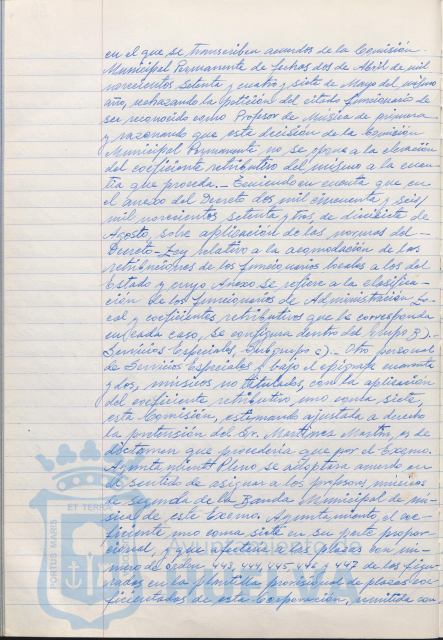 en el que se transcriben acuerdos de la Comisión
Municipal Permanente de fechas dos de Abril de mil
novecientos setenta y cuatro y siete de Mayo del mismo
año, rechazando la petición del citado funcionario de
ser reconocido como Profesor de Música de primera
y razonando que esta decisión de la Comisión
Municipal Permanente no se opone a la elevación
del coeficiente retributivo del mismo a la cuan-
tía que proceda.- Teniendo en cuenta que en
el anexo del Decreto dos mil cincuenta y seis/
mil novecientos setenta y tres, de diecisiete de
Agosto, sobre aplicación de las normas del -
Decreto-Ley relativo a la acomodación de las
retribuciones de los funcionarios locales a los del
Estado y cuyo Anexo se refiere a la clasifica-
ción de los funcionarios de Administración Lo-
cal y coeficientes retributivos que les corresponda
en cada caso, se configura dentro del Grupo B).
Servicios Especiales, Subgrupo c).- Otro personal
de Servicios Especiales y bajo el epígrafe cuarenta
y dos, músicos no titulados, con la aplicación
del coeficiente retributivo uno coma siete,
esta Comisión, estimando ajustada a derecho
la pretensión del Sr. Martínez Martín, es de
dictamen que procedería que por el Excmo.
Ayuntamiento Pleno se adoptara acuerdo en
el sentido de asignar a los profesores músicos
de segunda de la Banda Municipal de mú-
sica de este Excmo. Ayuntamiento, el coe-
ficiente uno coma siete en su parte propor-
cional, y que afectaría a las plazas con nú-
mero de orden 443, 444, 445, 446 y 447 de los figu-
rados en la plantilla provisional de plazas coe-
ficientadas de esta Corporación, remitida con
PORTUS MARIS
ET TERRA